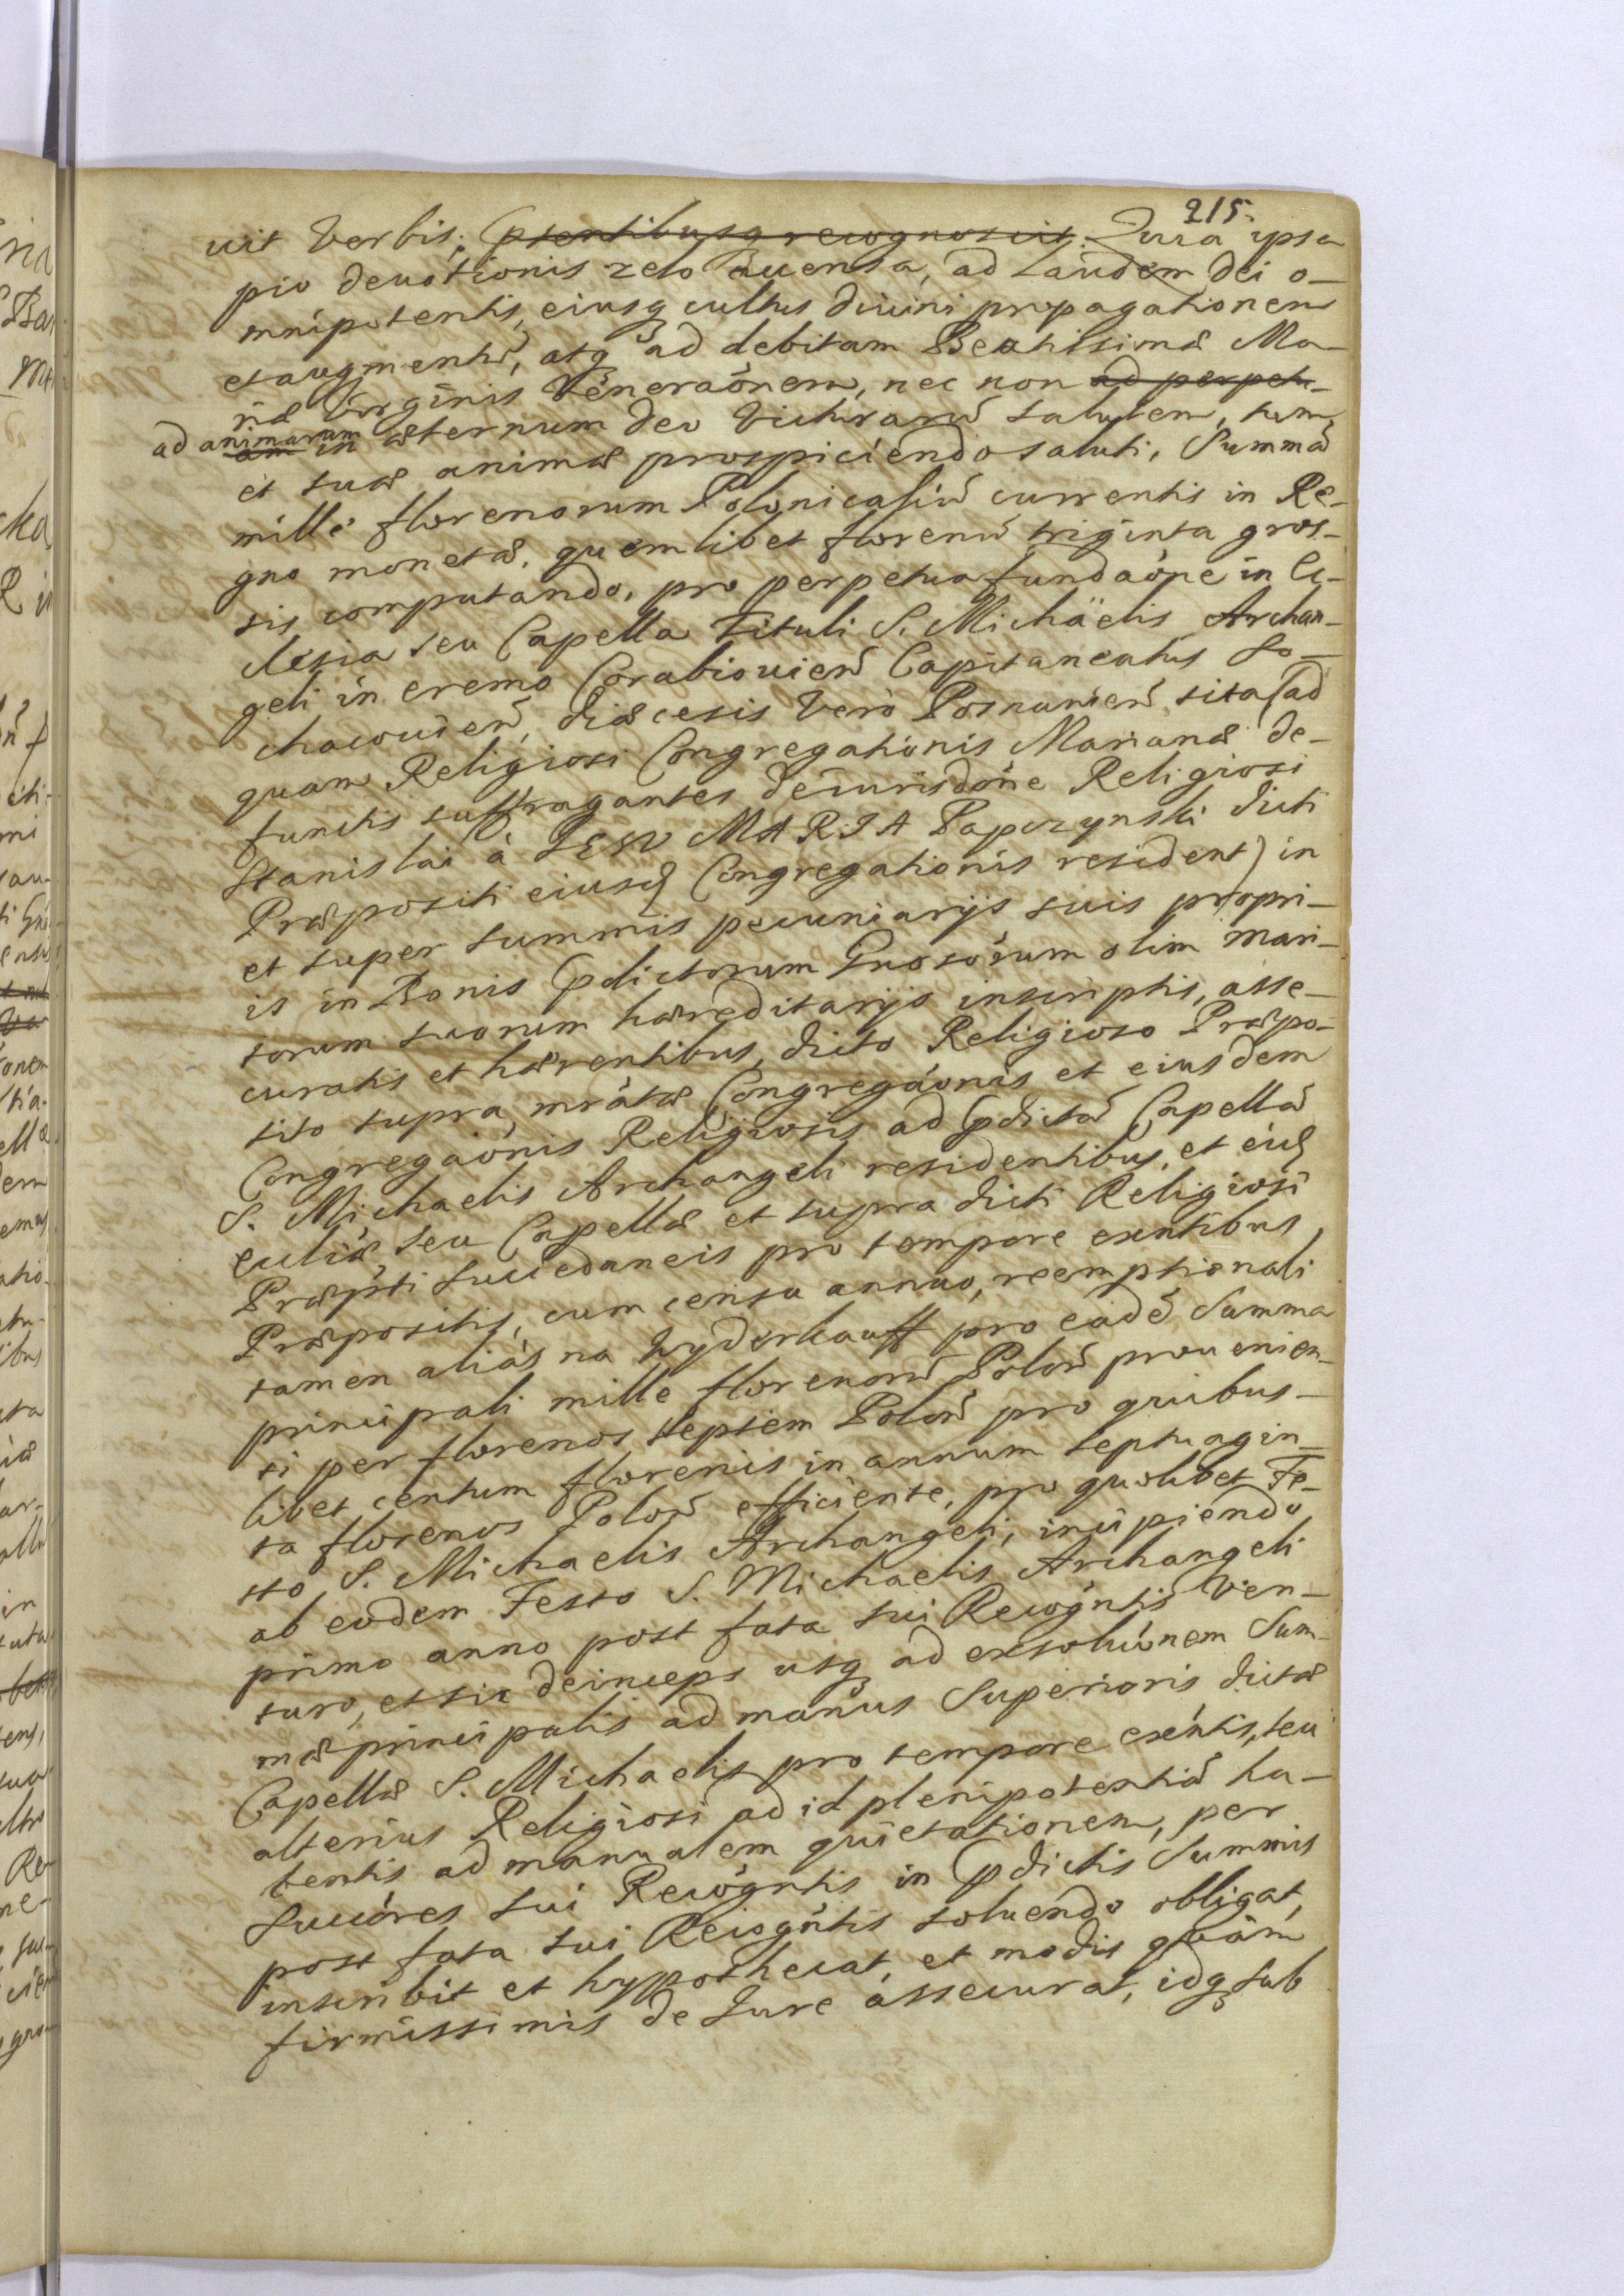 215.
uit Verbis, pńsentibusq recognoscit. Quia ipsa
pio deuotionis zelo áuensa, ad Laudem Dei o-
mnipotentis, eiusq cultus diuini propagationem
et augmentũ, atq ad debitam Beatissimæ Ma-
riæ Virginis Veneraónem, nec non ad perpetu-
ad animarum am in æternum Deo Victurarũ salutem, tum
et suæ animæ prospiciendo saluti, Summã
mille florenorum Polonicaliũ currentis in Re-
gno monetæ, quemlibet florenũ triginta gros-
sis computando, pro perpetua fundaóne in Ec-
clesia seu Capella Tituli S. Michäelis Archan-
geli in eremo Corabiouień Capitaneatus So-
chacouień, diæcesis Verò Posnanień sita (ad
quam Religiosi Congregationis Marianæ de-
functis suffragantes de iurisdóne Religiosi
Stanislai à IESV MARIA Papczynski dicti
Præpositi eiusd Congregationis resident) in
et super summis pecuniarijs suis propri-
is in Bonis pdictorum Gnosórum olim Mari-
torum suorum hæreditarijs inscriptis, asse-
curatis et hærentibus, dicto Religioso Præpo-
sito supra mrátæ Congregáonis et eiusdem
Congregaónis Religiosis ad pdictã Capellã
S. Michaelis Archangeli residentibus, et eiusd
eccliæ seu Capellæ et supra dicti Religiosi
Præpti succedaneis pro tempore exntibus
Præpositis, cum censu annuo, reemptionali
tamen aliàs na Wyderkauff pro eadẽ Summa
principali mille florenorũ Polon̄ prouenien-
ti per florenos septem Polon̄ pro quibus-
libet centum florenis in annum septuagin-
ta florenos Polon̄ efficiente, pro quolibet Fe-
sto S. Michaelis Archangeli, incipiendo
ab eodem Festo S. Michaelis Archangeli
primo anno post fata sui Recógntis Ven-
turo, et sic deinceps usq ad exsolućonem Sum-
mæ principalis ad manus Superioris dictæ
Capellæ S. Michaelis pro tempore exńtis, seu
alterius Religiosi ad id plenipotentiã ha-
bentis ad manualem quietationem, per
Succóres sui Recógntis in pdictis Summis
post fata sui Recógntis soluendo obligat,
inscribit et hypothecat, et modis quám
firmissimis de Iure assecurat, idq sub